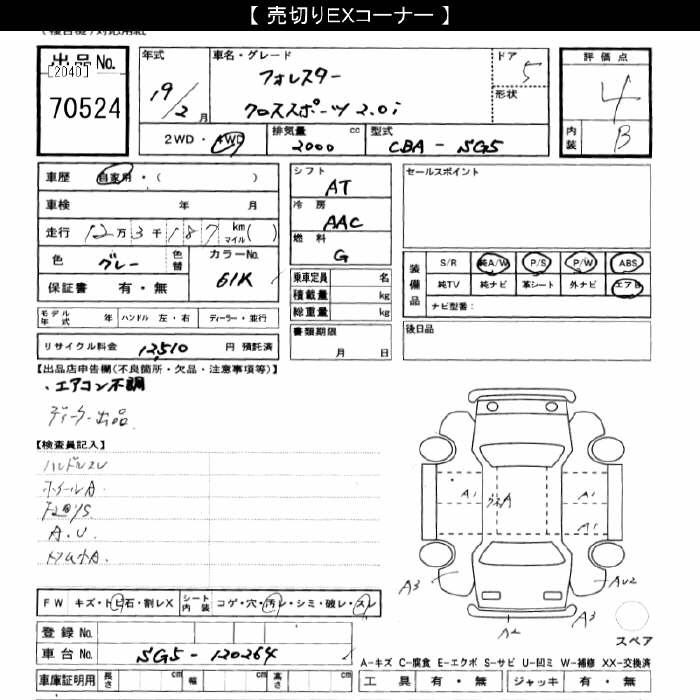 【 売切りEXコーナー 】
出品No.
[2040]
70524
年式
19/2月
車名・グレード
フォレスター
クロススポーツ 2.0i
ドア
5
形状
評価点
4
内装
B
2WD・4WD
排気量 2000 cc
型式 CBA - SG5
車歴 自家用・( )
車検 年 月
走行 12万3千187 km マイル( )
色 グレー 色替
カラーNo.
61K
保証書 有・無
シフト
AT
冷房
AAC
燃料
G
乗車定員 名
積載量 kg
総重量 kg
セールスポイント
装備品
S/R 純A/W P/S P/W ABS
純TV 純ナビ 革シート 外ナビ エアB
ナビ型番:
モデル年式 年 ハンドル 左・右 ディーラー・並行
書類期限
月 日
後日品
リサイクル料金 12,510 円 預託済
【出品店申告欄(不良箇所・欠品・注意事項等)】
・エアコン不調
ディーラー出品
【検査員記入】
ハンドルスレ
ホイールA.
A.U.
A1
A1
A1
A
A3
AU2
A3
A2
スペア
FW キズ・トビ石・割レX
シート内装 コゲ・穴・汚レ・シミ・破レ・スレ
登録No.
車台No. SG5-120264
車庫証明用 長さ cm 幅 cm 高さ cm
A-キズ C-腐食 E-エクボ S-サビ U-凹ミ W-補修 XX-交換済
工具 有・無 ジャッキ 有・無